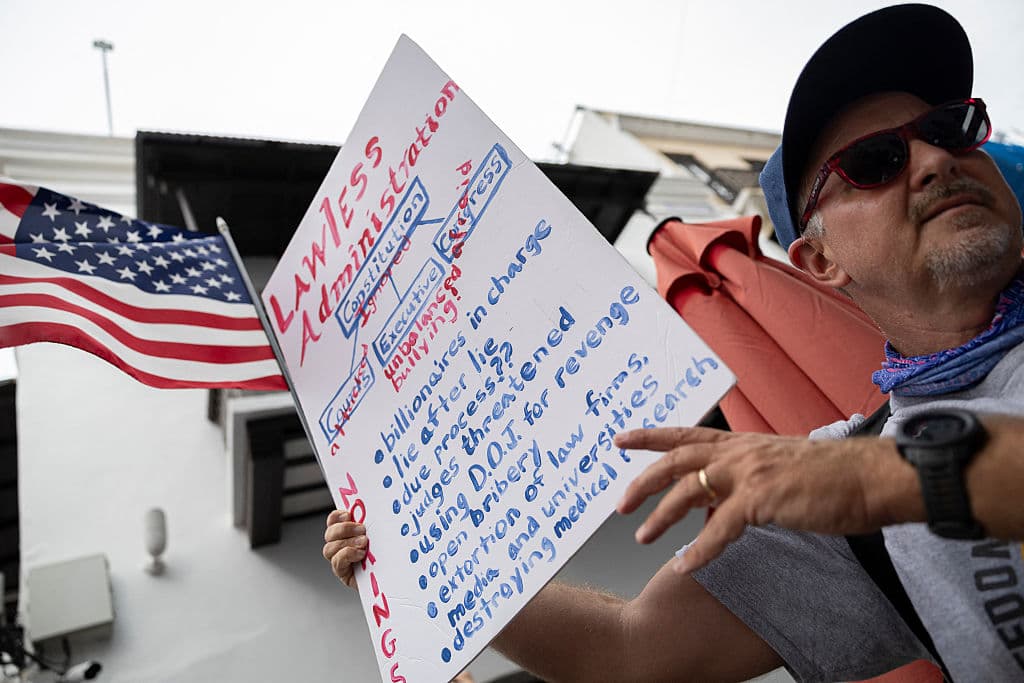 LAWLESS
Administration
Constitution
Ignored
Congress
Executive
unbalanced
bullying!
Courts
• billionaires in charge
• lie after lie
• due process??
• judges threatened
• using D.O.J. for revenge
• open bribery
• extortion of law firms,
media and universities
• destroying medical research
NO KINGS